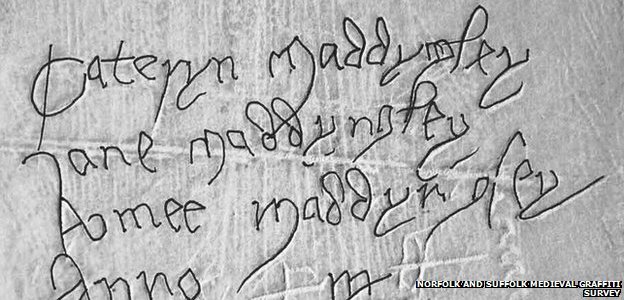 Cateryn Maddyngley
Jane Maddyngley
Amee Maddyngley
Anno
NORFOLK AND SUFFOLK MEDIEVAL GRAFFITI
SURVEY